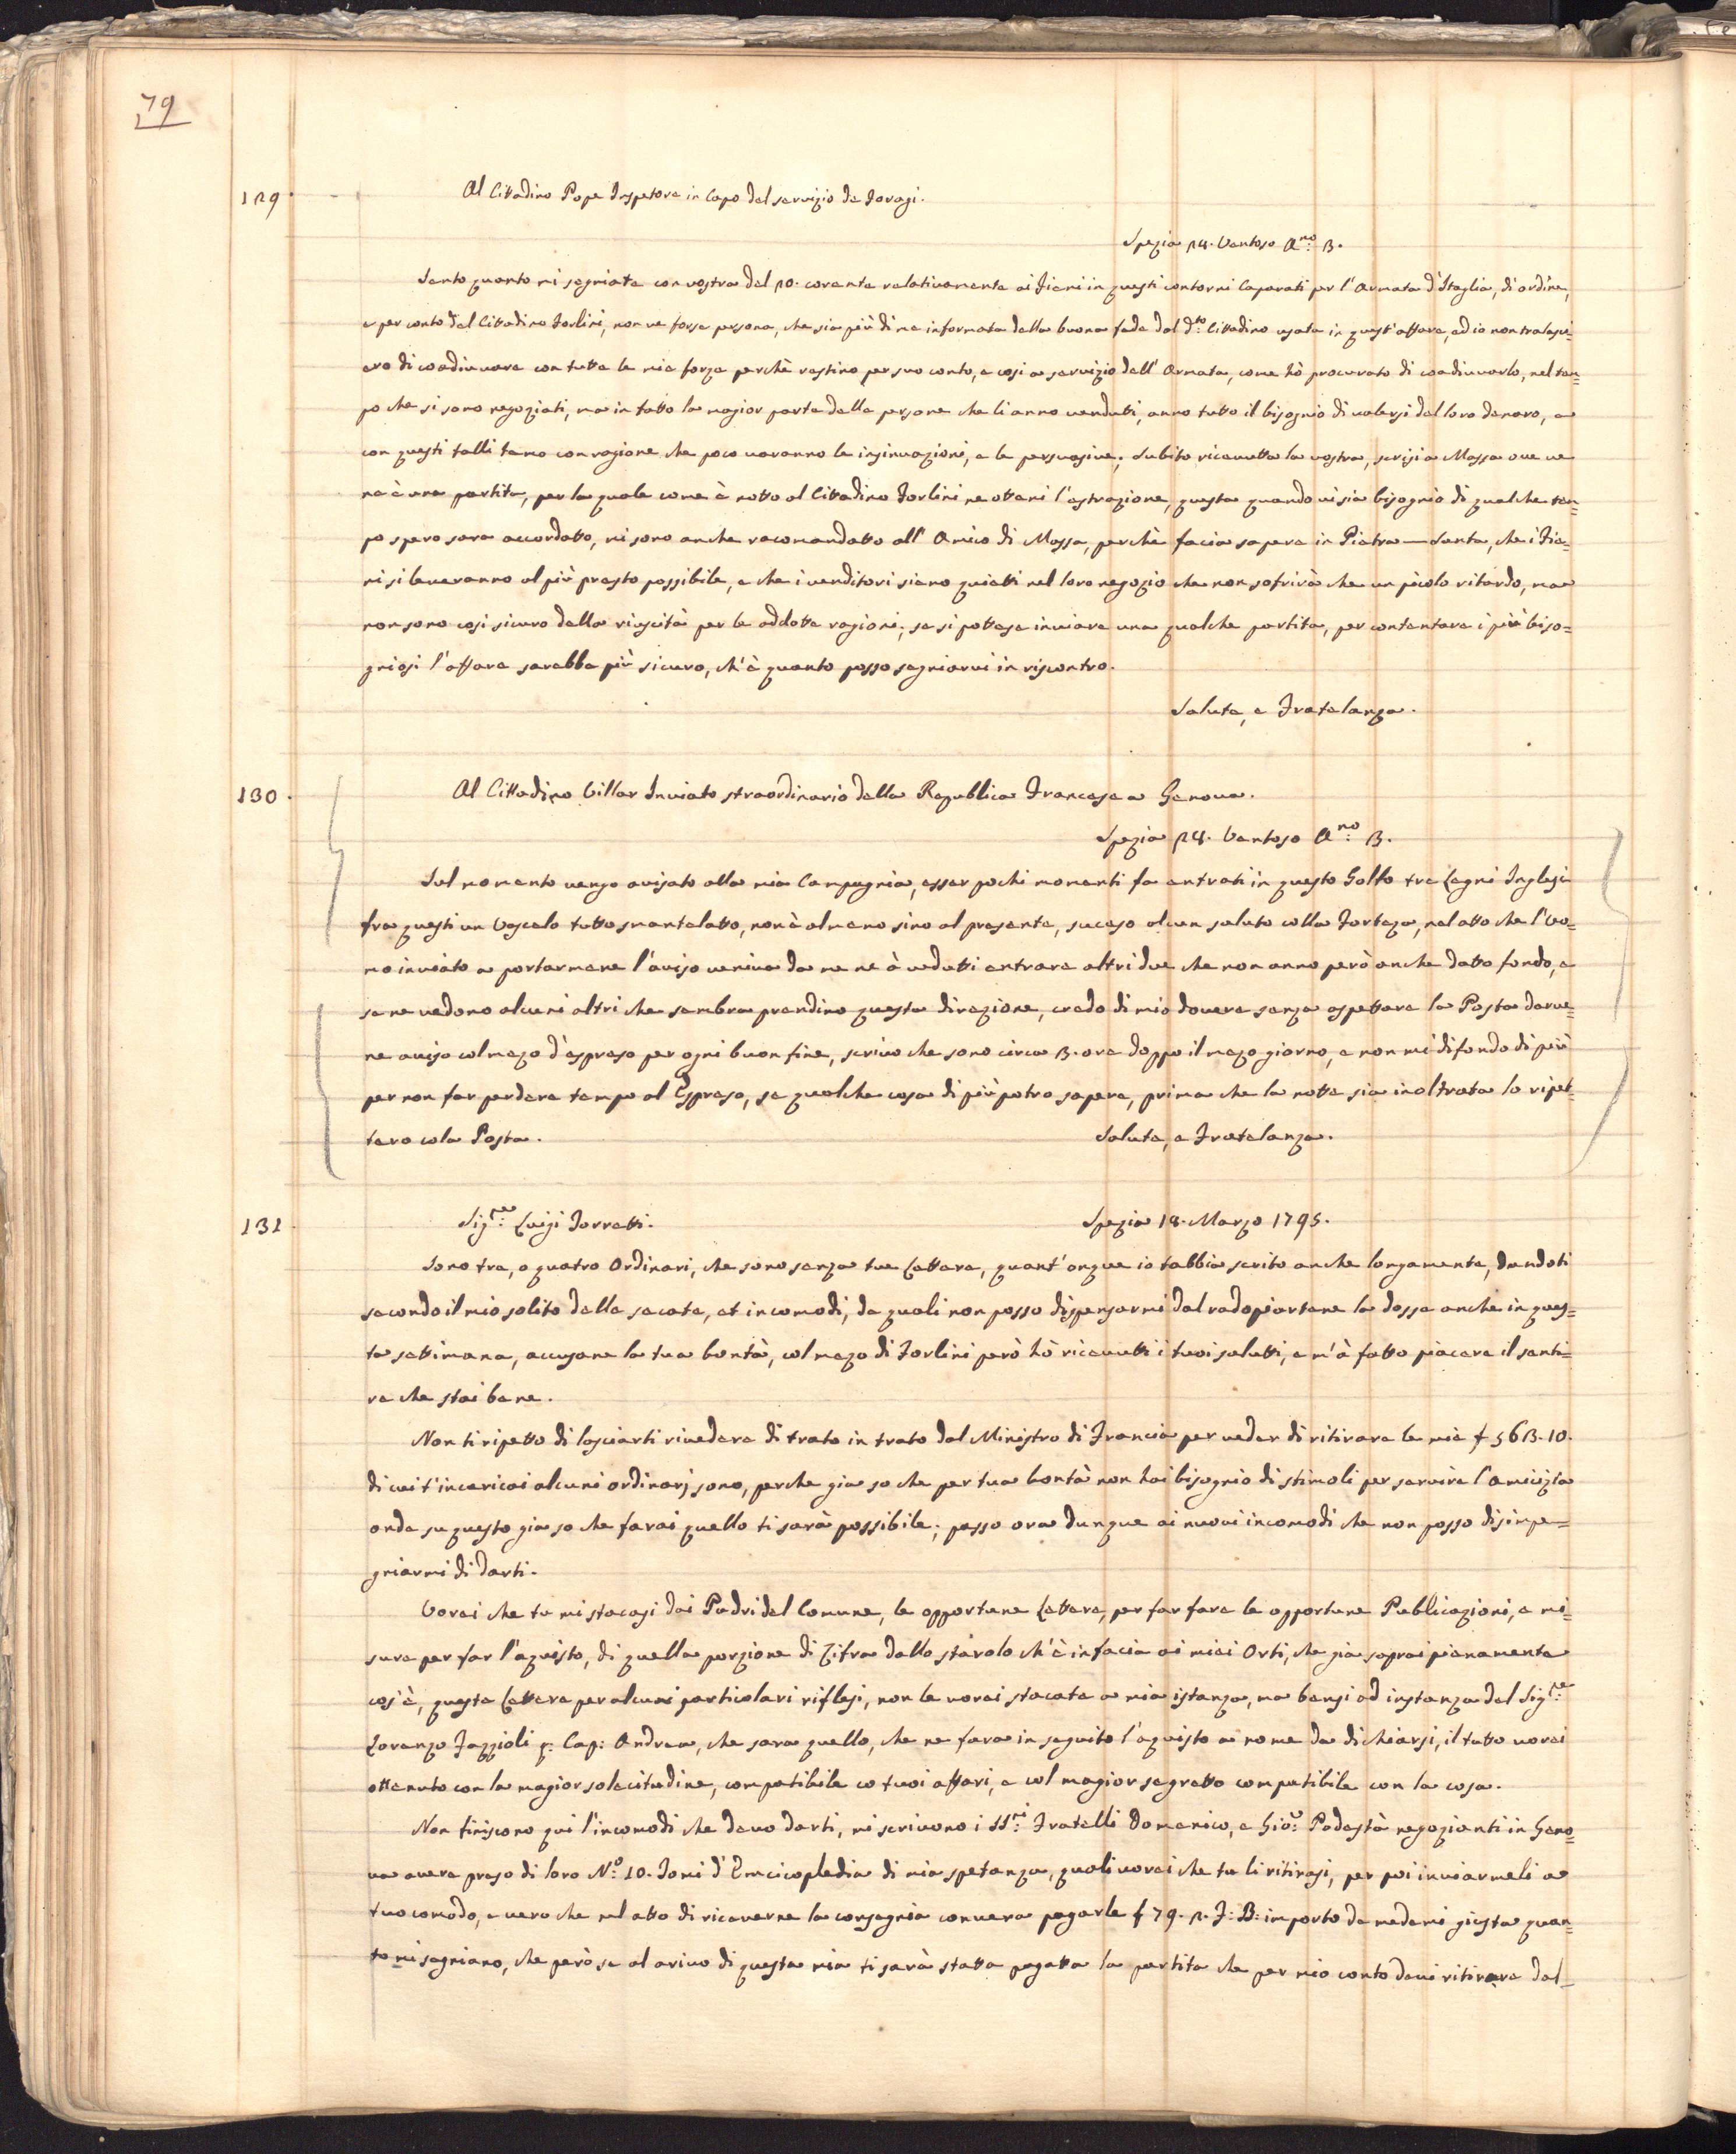 79
129.
Al Cittadino Pope Inspetore in Capo del servizio de Foragi.
Spezia 24. Ventoso A.no 3.
Sento quanto mi segniate con vostra del 20. corente relativamente ai Fieni in questi contorni Caparati per l'Armata d'Itaglia, di ordine,
e per conto del Cittadino Forlini, non ve forse persona, che sia più di me informata della buona fede dal d.to Cittadino usata in quest'affare, ed io non tralasci=
ero di coadiuvare con tutte le mie forze perchè restino per suo conto, e cosi a servizio dell'Armata, come hò procurato di coadiuvarlo, nel tem=
po che si sono negoziati, ma in fatto la magior parte delle persone che li anno venduti, anno tutto il bisognio di valersi del loro denaro, e
con questi talli temo con ragione che poco varanno le insinuazioni, e le persuasive; Subito ricevutta la vostra, scrisi a Massa ove ve
ne è una partita, per la quale come è notto al Cittadino Forlini ne otteni l'estrazione, questa quando vi sia bisognio di qualche tem=
po spero sara accordatto, mi sono anche racomandatto all'Amico di Massa, perchè facia sapere in Pietra-Santa, che i Fie=
ni si leveranno al più presto possibile, e che i venditori siano quietti nel loro negozio che non sofrirà che un picolo ritardo, ma
non sono cosi sicuro della riuscità per le addotte ragioni; se si pottese inviare una qualche partita, per contentare i più biso=
gniosi l'affare sarebbe più sicuro, ch'è quanto posso segniarvi in riscontro.
Salute, e Fratelanza.
130.
Al Cittadino Villar Inviato straordinario della Republica Francese a Genova.
Spezia 24. Ventoso A.no 3.
Sul momento vengo avisato alla mia Campagnia, esser pochi momenti fa entrati in questo Golfo tre Legni Inglesi
fra questi un Vascelo tutto smantelatto, non è almeno sino al presente, suceso alcun saluto colla Forteza, nel atto che l'Uo=
mo inviato a portarmene l'aviso veniva da me ne à vedutti entrare altri due che non anno però anche datto fondo, e
se ne vedono alcuni altri che sembra prendino questa direzione, credo di mio dovere senza aspettare la Posta darve=
ne aviso col mezo d'espreso per ogni buon fine, scrivo che sono circa 3. ore doppo il mezo giorno, e non mi difondo di più
per non far perdere tempo al Espreso, se qualche cosa di più potro sapere, prima che la notte sia inoltrata lo ripet=
tero cola Posta.
Salute, e Fratelanza.
131
Sig.re Luigi Torretti.
Spezia 18. Marzo 1795.
Sono tre, o quatro Ordinari, che sono senza tue Lettere, quant'anque io t'abbia scrito anche longamente, dandoti
secondo il mio solito delle secate, et incomodi, da quali non posso dispensarmi dal radopiartene la dosse anche in ques=
ta settimana, accusane la tua bontà, col mezo di Forlini però hò ricevutti i tuoi salutti, e m'à fatto piacere il senti=
re che stai bene.
Non ti ripetto di lasciarti rivedere di trato in trato dal Ministro di Francia per veder di ritirare le mie £ 563.10.
di cui t'incaricai alcuni ordinarj sono, perche gia so che per tua bontà non hai bisognio di stimoli per servire l'amicizia
onde su questo gia so che farai quello ti sarà possibile; passo ora dunque ai nuovi incomodi che non posso disimpe=
gniarmi di darti.
Vorei che tu mi stacasi dai Padri del Comune, le opportune Lettere, per far fare le opportune Publicazioni, e mi=
sure per far l'aquisto, di quella porzione di Zifra dallo stàrolo ch'è in facia ai miei Orti, che gia saprai pienamente
cos'è, queste Lettere per alcuni particolari riflesi, non le vorei stacate a mia istanza, ma bensi ad instanza del Sig.re
Lorenzo Fazzioli q: Cap: Andrea, che sara quello, che ne fara in seguito l'aquisto a nome da dichiarsi, il tutto vorei
ottenuto con la magior solecitudine, compatibile co tuoi affari, e col magior segretto compatibile con la cosa.
Non finiscono qui l'incomodi che devo darti, mi scrivono i SS.ri Fratelli Domenico, e Gio: Podestà negozianti in Geno=
va avere preso di loro N.o 10. Tomi d'Emcicopledia di mia spetanza, quali vorei che tu li ritirasi, per poi inviarmeli a
tuo comodo, e vero che nel atto di riceverne la consegnia convera pagarle £ 79.2. F: B: importo de medemi giusta quan=
to mi segniano, che però se al arivo di questa mia ti sarà statta pagatta la partita che per mio conto devi ritirare dal=